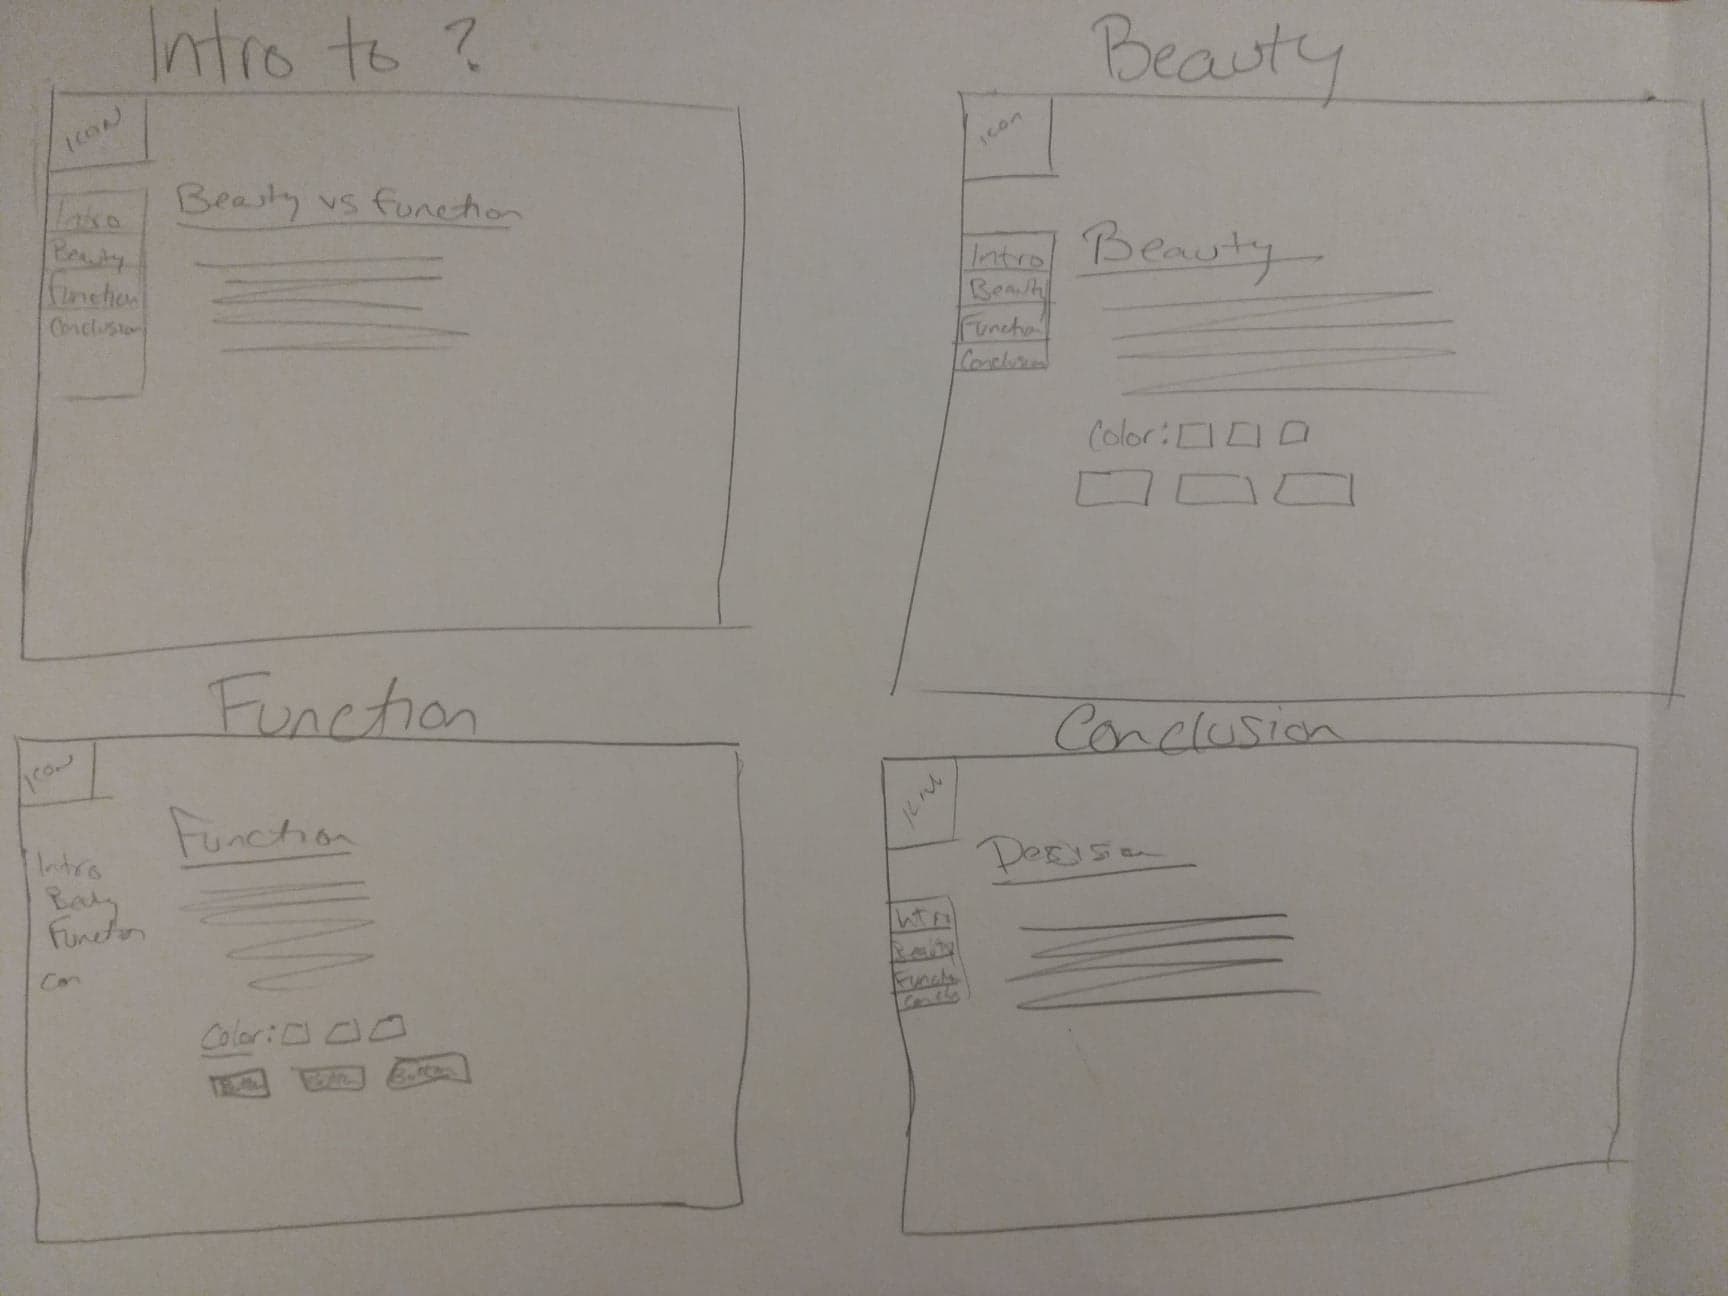 Intro to ?
ICON
Intro
Beauty
Function
Conclusion
Beauty vs function
Beauty
icon
Intro
Beauty
Function
Conclusion
Beauty
Color:
Function
ICON
Intro
Function
Con
Function
Color:
Button
Conclusion
Intro
Beauty